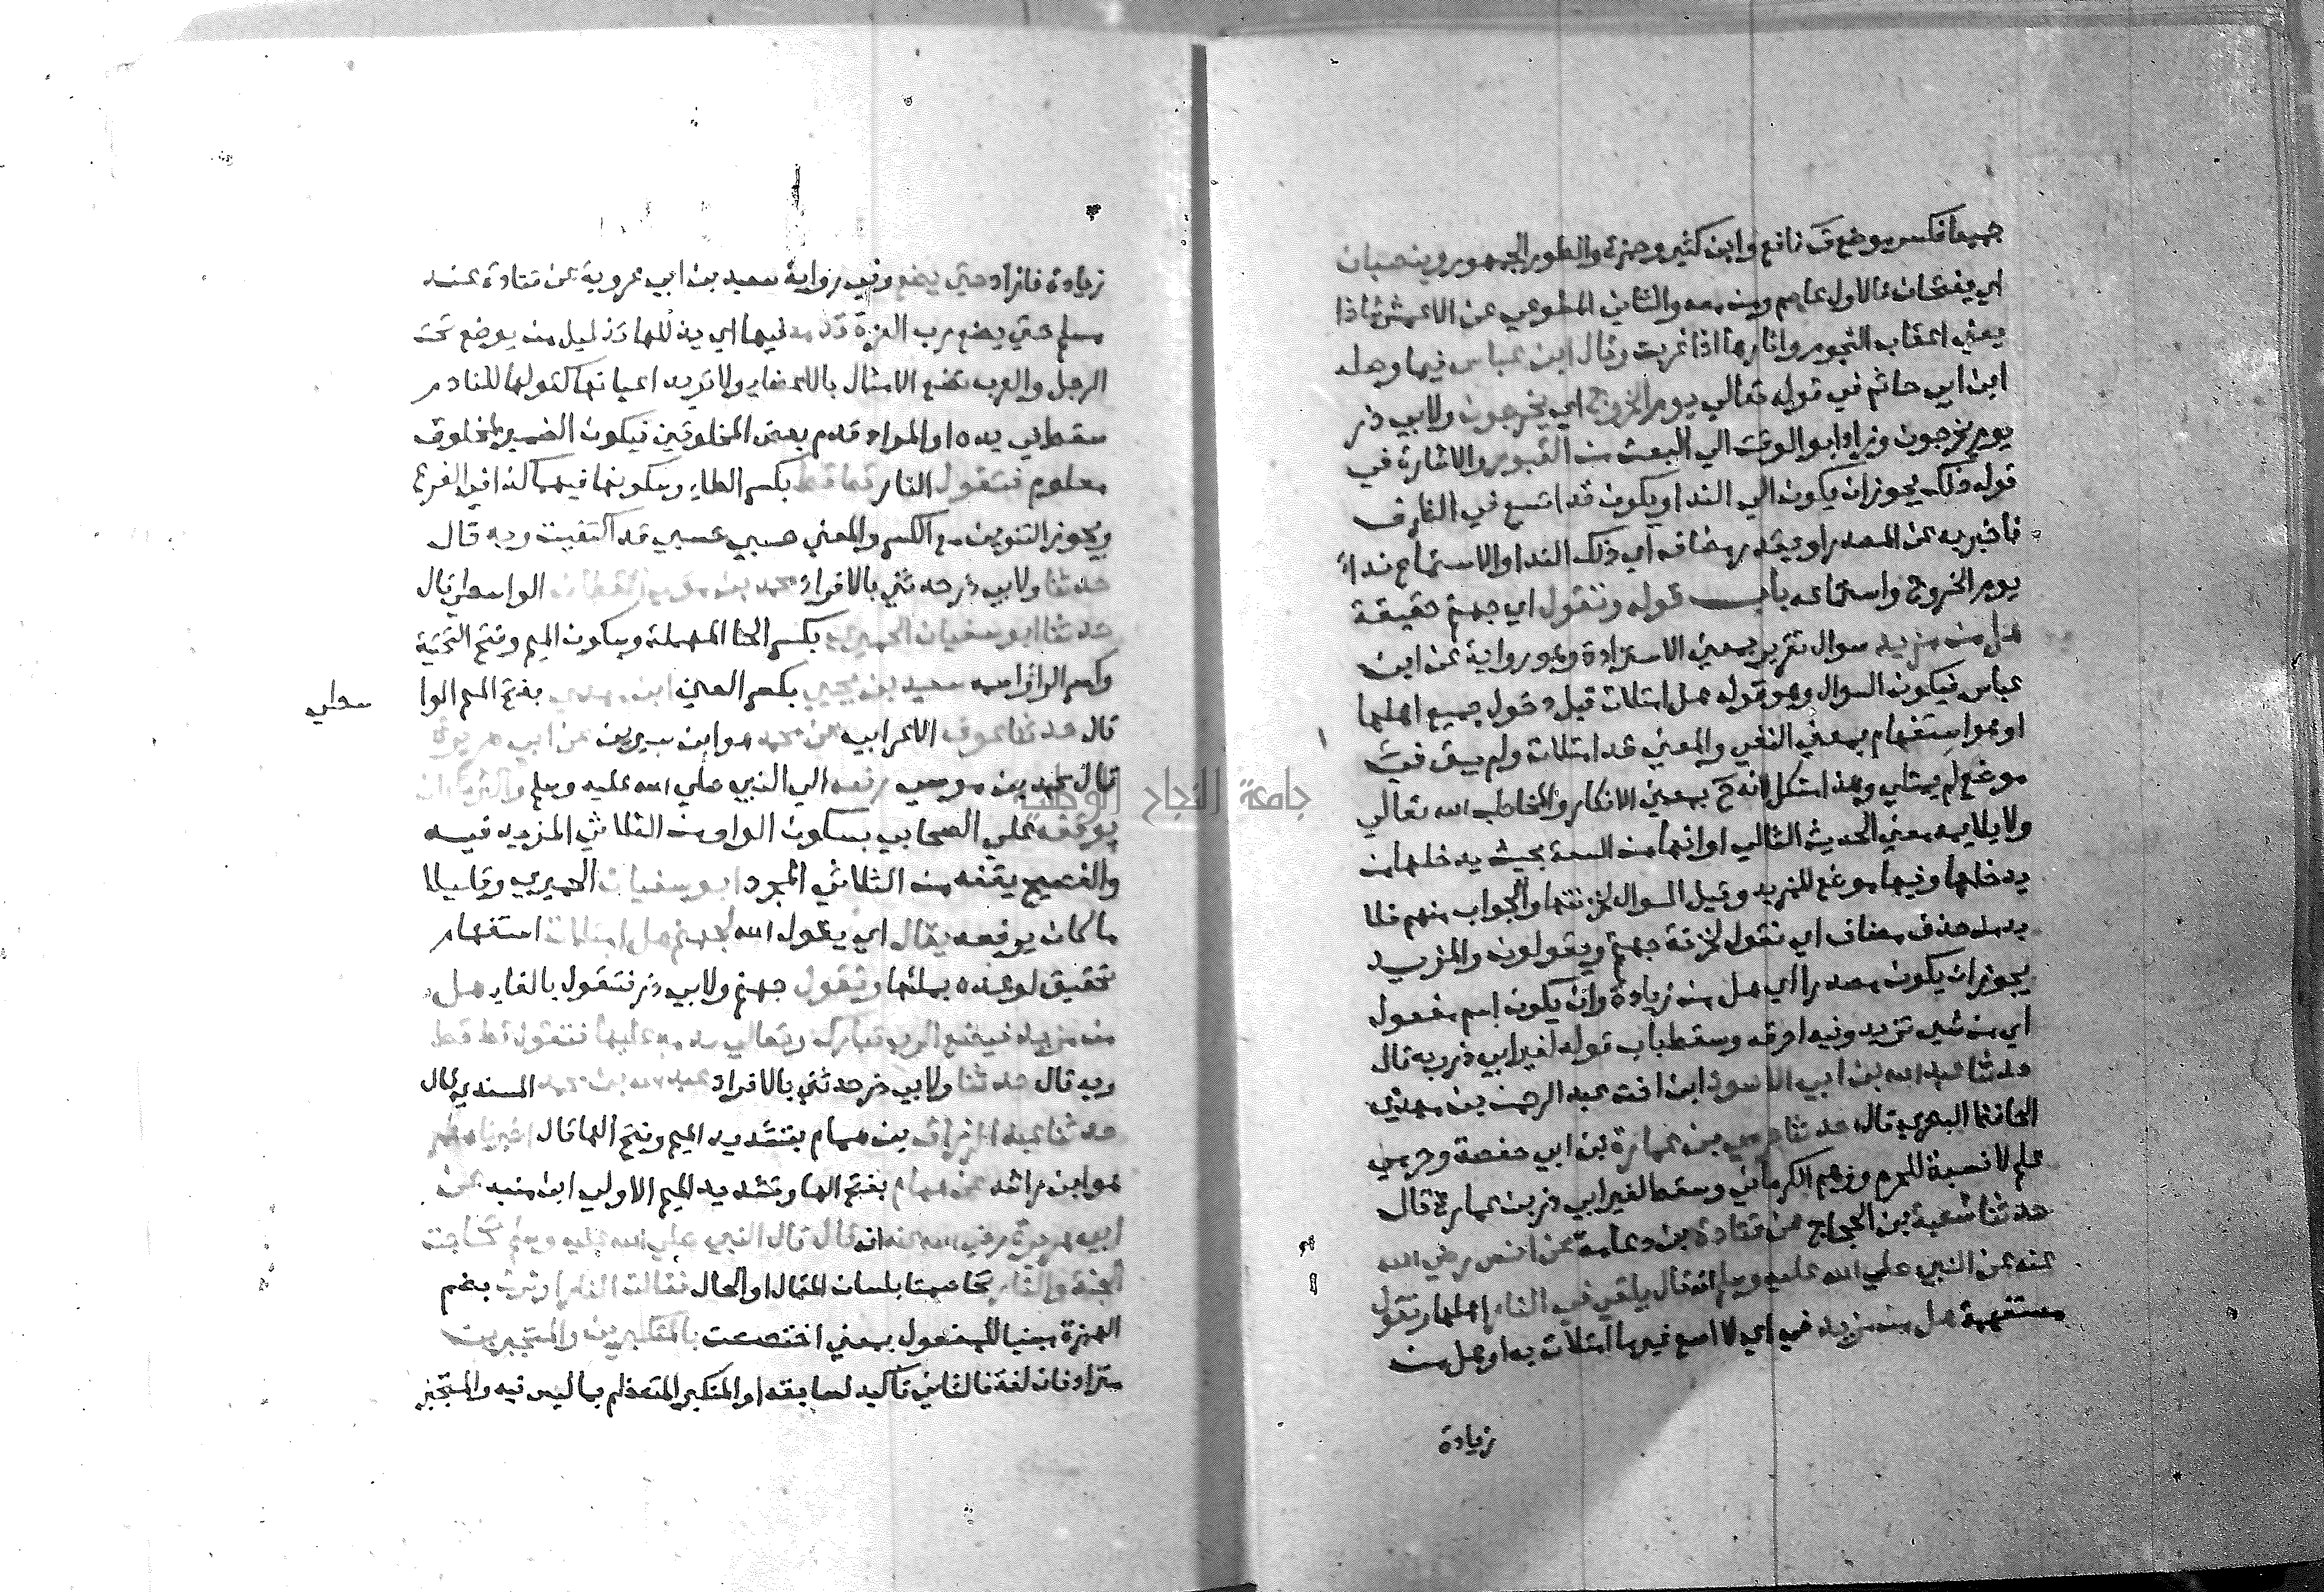 جميعا فكسر موضع ق نافع وابن كثير وحمزة والطور الجمهور وينصبان
اي يفتحان فالاول عاصم ومن معه والثاني المطوعي عن الاعمش شاذا
يعني اعقاب النجوم واثارها اذا غربت وقال ابن عباس فيما وصله
ابن ابي حاتم في قوله تعالي يوم الخروج اي يخرجون ولابي ذر
يوم يخرجون وزاد ابو الوقت الي البعث من القبور والاشارة في
قوله ذلك يجوز ان يكون الي الندا ويكون قد اتسع في الظرف
فاخبر به عن المصدر او يقدر مضاف اي ذلك الندا والاستماع نداء
يوم الخروج واستماعه باب قوله وتقول اي جهنم حقيقة
هل من مزيد سوال تقرير بمعني الاستزادة وهو رواية عن ابن
عباس فيكون السوال وهو قوله هل امتلات قبل دخول جميع اهلها
او هو استفهام بمعني النفي والمعني قد امتلات ولم يبق في
موضع لم يمتلي وهذا مشكل لانه ح بمعني الانكار والمخاطب الله تعالي
ولا يلايمه معني الحديث التالي او انها من السعة بحيث يدخلها من
يدخلها وفيها موضع للمزيد وقيل السوال لخزنتها والجواب منهم فلا
بد من حذف مضاف اي نقول لخزنة جهنم ويقولون والمزيد
يجوز ان يكون مصدرا اي هل من زيادة وان يكون اسم مفعول
اي من شي تزيدونيه احرقه وسقط باب قوله لغير ابي ذر وبه قال
حدثنا عبد الله بن ابي الاسود ابن اخت عبد الرحمن بن مهدي
الحافظ البصري قال حدثنا حرمي بن عمارة بن ابي حفصة وحرمي
علم لا نسبة للحرم ووهم الكرماني وسقط لغير ابي ذر بن عمارة قال
حدثنا شعبة بن الحجاج عن قتادة بن دعامة عن انس رضي الله
عنه عن النبي صلي الله عليه وسلم انه قال يلقي في النار اهلها وتقول
مستفهمة هل من مزيد في اي لا اسع غير ما امتلات به او هل من
زيادة
زيادة فازاد حتي يضع وفي رواية سعيد بن ابي عروبة عن قتادة عند
مسلم حتي يضع رب العزة قدمه فيها اي يذللها تذليل من يوضع تحت
الرجل والعرب تضع الامثال بالاعضاء ولا تريد اعيانها كقولها للنادم
سقط في يده او المراد قدم بعض المخلوقين فيكون الضمير لمخلوق
معلوم فتقول النار قط قط بكسر الطاء وسكونها فيهما كذا في الفرع
ويجوز التنوين مع الكسر والمعني حسبي حسبي قد اكتفيت وبه قال
حدثنا ولابي ذر حدثني بالافراد محمد بن موسي القطان الواسطي قال
حدثنا ابو سفيان الحميري بكسر الحا المهملة وسكون الميم وفتح التحتية
وكسر الرا اسمه سعيد بن يحيي بكسر العين ابن مهدي بفتح الميم الوا
سطي
قال حدثنا عوف الاعرابي عن محمد هو ابن سيرين عن ابي هريرة
قال محمد بن موسي رفعه الي النبي صلي الله عليه وسلم واكثر ما كان
يوقفه علي الصحابي بسكون الواو من الثلاثي المزيد فيه
والفصيح يقفه من الثلاثي المجرد ابو سفيان الحميري وقليلا
ما كان يرفعه يقال اي يقول الله لجهنم هل امتلات استفهام
تحقيق لوعده بملئها وتقول جهنم ولابي ذر فتقول بالفاء هل
من مزيد فيضع الرب تبارك وتعالي قدمه عليها فتقول قط قط
وبه قال حدثنا ولابي ذر حدثني بالافراد عبد الله بن محمد المسندي قال
حدثنا عبد الرزاق بن همام بتشديد الميم وفتح الها قال اخبرنا معمر
هو ابن راشد عن همام بفتح الها وتشديد الميم الاولي ابن منبه عن
ابي هريرة رضي الله عنه انه قال قال النبي صلي الله عليه وسلم تحاجت
الجنة والنار تخاصمتا بلسان المقال او الحال فقالت النار اوثرت بضم
الهمزة مبنيا للمفعول بمعني اختصصت بالمتكبرين والمتجبرين
مترادفان لغة فالثاني تاكيد لسابقه او المتكبر المتعظم بما ليس فيه والمتجبر
جامعة النجاح الوطنية